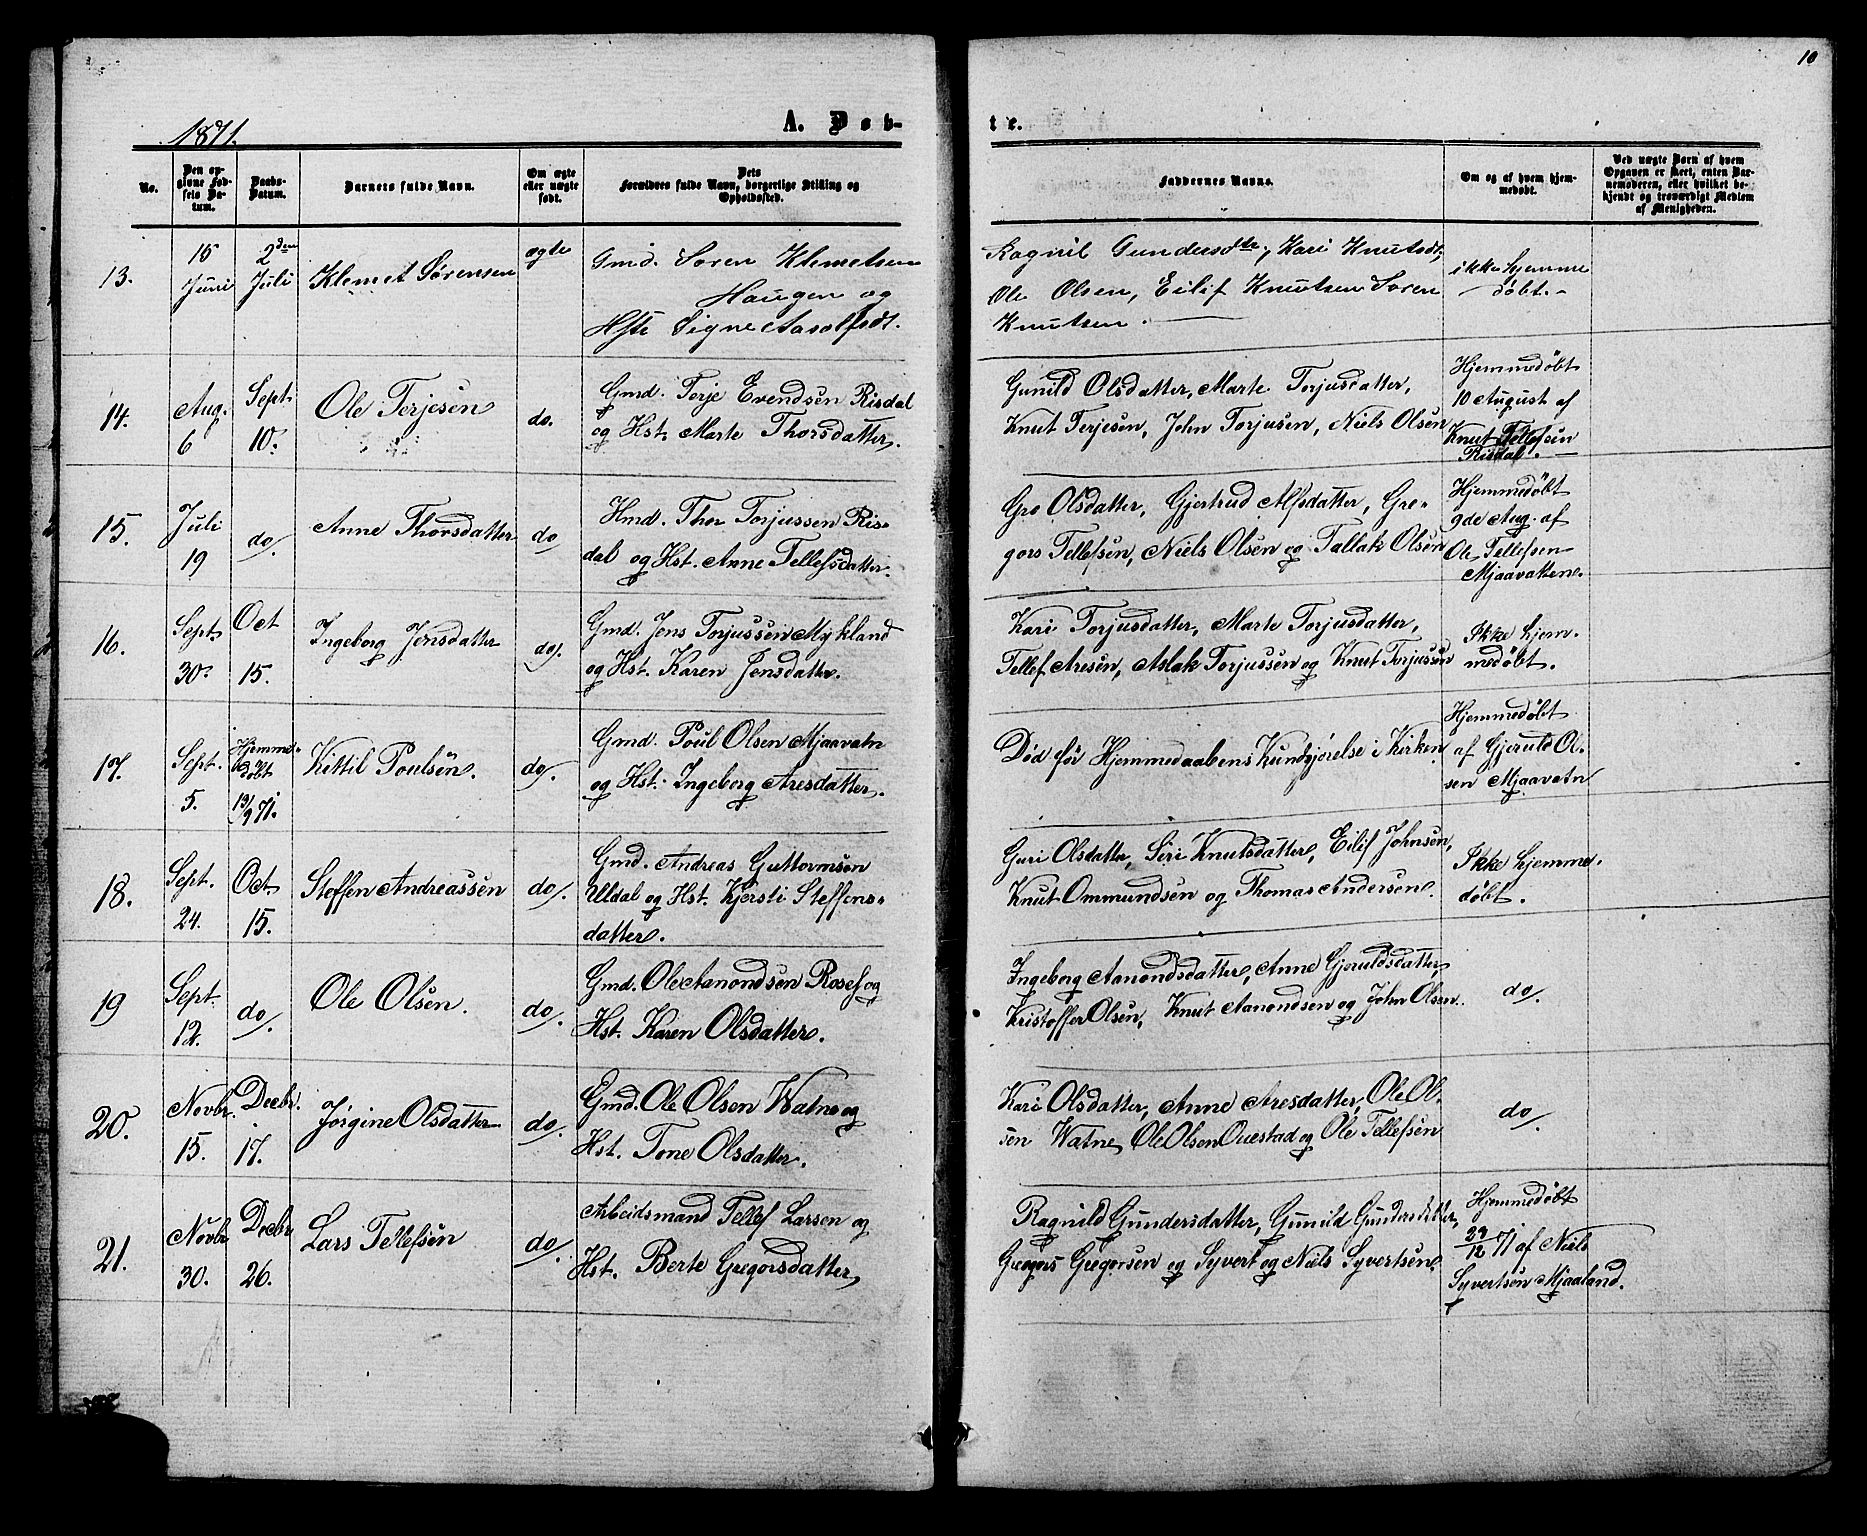 10
1871.
A. Døb-
te.
No.
Den op-
givne Fød-
sels Da-
tum.
Daabs-
Datum.
Barnets fulde Navn.
Om ægte
eller uægte
født.
Dets
Forældres fulde Navn, borgerlige Stilling og
Opholdssted.
Faddernes Navne.
Om og af hvem hjem-
medøbt.
Ved uægte Børn af hvem
Opgaven er skeet, enten Bar-
nemoderen, eller hvilket be-
kjendt og troværdigt Medlem
af Menigheden.
13.
15
Juni
2den
Juli
Klemet Sørensen
ægte
Gmd. Søren Klemetsen
Haugen og
Hst Signe Aasolfsdt.
Ragnil Gundersdtr, Kari Knutsdt,
Ole Olsen, Eilif Knutsen Søren
Knutsen.
ikke hjemme
døbt.
14.
Aug.
6
Sept
10.
Ole Terjesen
do.
Gmd. Terje Evendsen Risdal
og Hst. Marte Thorsdatter.
Gunild Olsdatter, Marte Torjusdatter,
Knut Terjesen, John Torjusen, Niels Olsen
Hjemmedøbt
10 August af
Knut Tellefsen
Risdal.
15.
Juli
19
do.
Anne Thorsdatter
do
Hmd. Thor Torjussen Ris-
dal og Hst. Anne Tellefsdatter.
Gro Olsdatter, Gjertrud Alfsdatter, Gre-
gors Tellefsen, Niels Olsen og Tallak Olsen
Hjemmedøbt
9de Aug. af
Ole Tellefsen
Mjaavatten.
16.
Sept.
30.
Oct
15.
Ingeborg Jensdatter
do.
Gmd. Jens Torjussen Mykland
og Hst. Karen Jensdatter.
Kari Torjusdatter, Marte Torjusdatter,
Tellef Aresen, Aslak Torjussen og Knut Torjussen
Ikke hjem-
medøbt.
17.
Sept.
5.
Hjemme-
døbt
13/9 71.
Kittil Poulsen.
do.
Gmd. Poul Olsen Mjaavatn
og Hst. Ingeborg Aresdatter.
Død før Hjemmedaabens Kundgjørelse i Kirken
Hjemmedøbt
af Gjeruld Ol-
sen Mjaavatn
18.
Sept.
24.
Oct.
15.
Steffen Andreassen
do.
Gmd. Andreas Guttormsen
Uldal og Hst. Kjersti Steffens-
datter.
Guri Olsdatter, Siri Knutsdatter, Eilif Johnsen,
Knut Ommundsen og Thomas Andersen.
Ikke hjemme-
døbt.
19
Sept.
12.
do.
Ole Olsen.
do.
Gmd. Ole Aanondsen Rosef og
Hst. Karen Olsdatter.
Ingeborg Aanondsdatter, Anne Gjeruldsdatter,
Kristoffer Olsen, Knut Aanondsen og John Olsen.
do.
20.
Novbr.
15.
Decbr.
17.
Jørgine Olsdatter
do.
Gmd. Ole Olsen Watne og
Hst. Tone Olsdatter.
Kari Olsdatter, Anne Aresdatter, Ole Ol-
sen Watne, Ole Olsen Ouestad og Ole Tellefsen
do.
21.
Novbr
30.
Decbr
26.
Lars Tellefsen
do.
Arbeidsmand Tellef Larsen og
Hst. Berte Gregorsdatter,
Ragnild Gundersdatter, Gunild Gundersdatter,
Gregors Gregorsen og Syvert og Niels Syvertsen.
Hjemmedøbt
24/12 71 af Niels
Syvertsen Mjaaland.